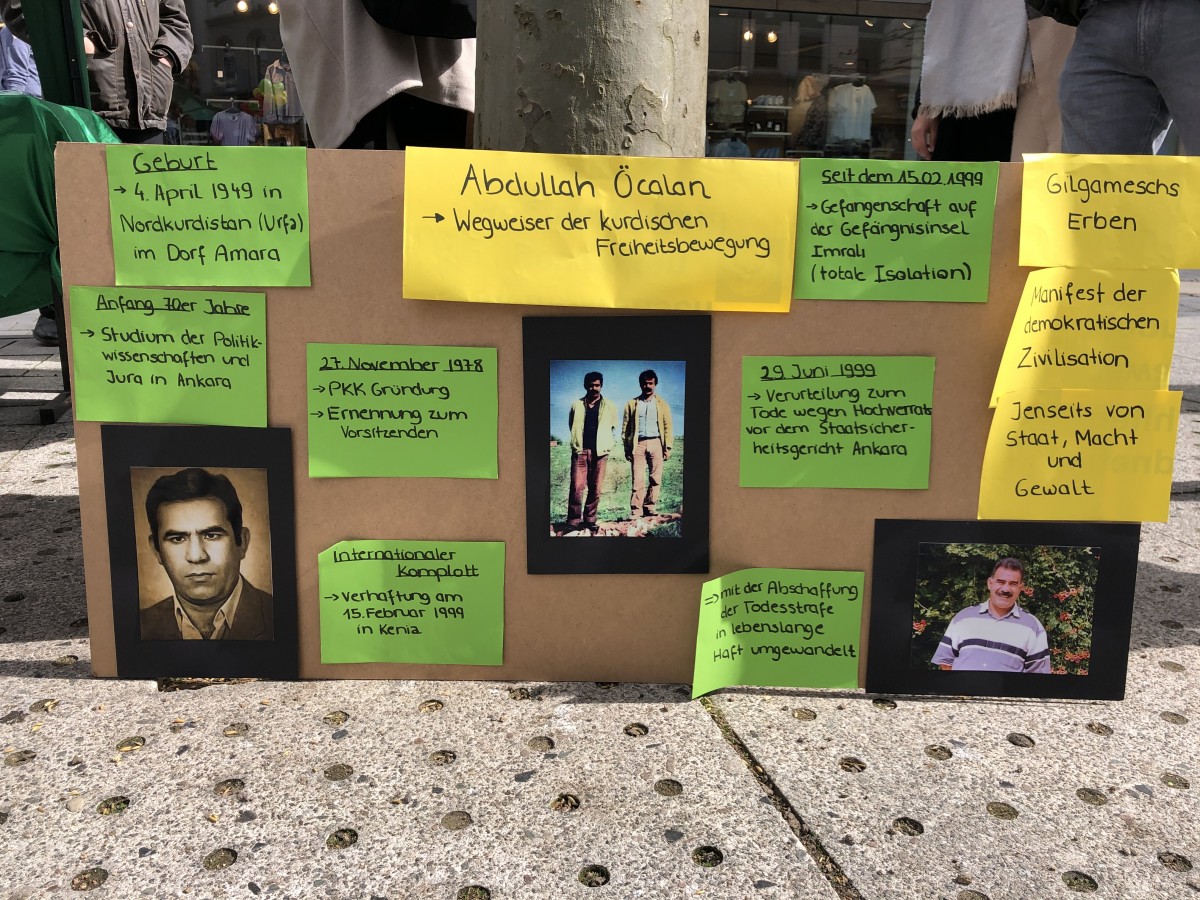 Geburt
→ 4. April 1949 in
Nordkurdistan (Urfa)
im Dorf Amara
Anfang 70er Jahre
→ Studium der Politik-
wissenschaften und
Jura in Ankara
27. November 1978
→ PKK Gründung
→ Ernennung zum
Vorsitzenden
Internationaler
Komplott
→ Verhaftung am
15. Februar 1999
in Kenia
Abdullah Öcalan
→ Wegweiser der kurdischen
Freiheitsbewegung
Seit dem 15.02.1999
→ Gefangenschaft auf
der Gefängnisinsel
Imrali
(totale Isolation)
29 Juni 1999
→ Verurteilung zum
Tode wegen Hochverrats
vor dem Staatsicher-
heitsgericht Ankara
⇒ mit der Abschaffung
der Todesstrafe
in lebenslange
Haft umgewandelt
Gilgameschs
Erben
Manifest der
demokratischen
Zivilisation
Jenseits von
Staat, Macht
und
Gewalt